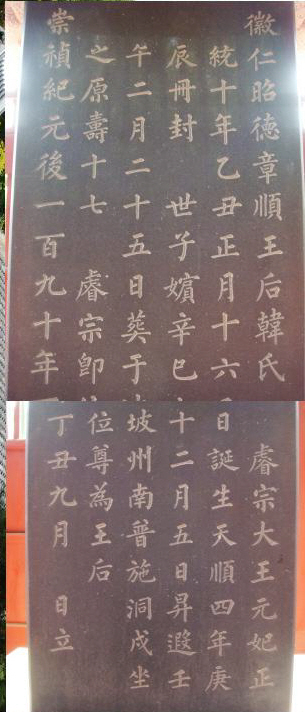 徽仁昭德章順王后韓氏 睿宗大王元妃正
統十年乙丑正月十六日誕生天順四年庚
辰冊封 世子嬪辛巳十二月五日昇遐壬
午二月二十五日葬于坡州南普施洞戌坐
之原壽十七 睿宗卽位尊為王后
崇禎紀元後一百九十年丁丑九月 日立